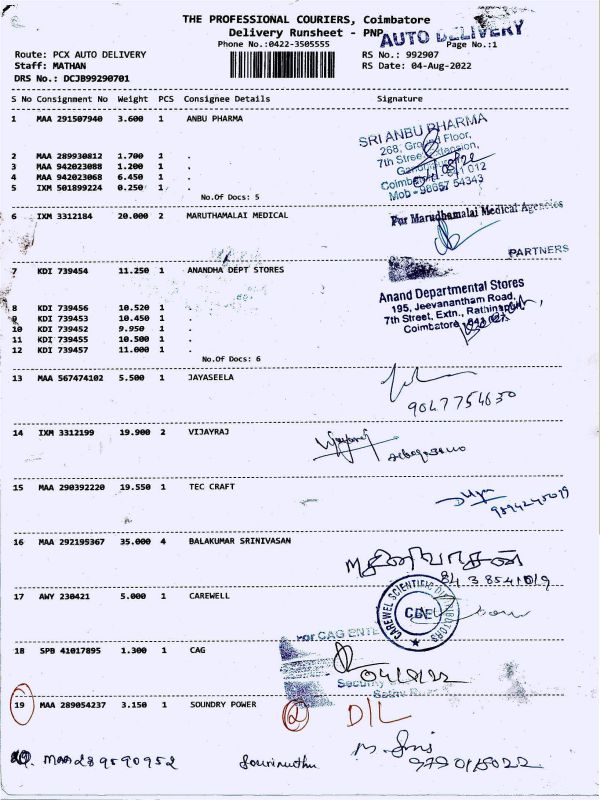 THE PROFESSIONAL COURIERS, Coimbatore
Delivery Runsheet - PNP
AUTO DELIVERY
Phone No.:0422-3505555
Page No.:1
Route: PCX AUTO DELIVERY
RS No.: 992907
Staff: MATHAN
RS Date: 04-Aug-2022
DRS No.: DCJB99290701
S No Consignment No Weight PCS Consignee Details Signature
1 MAA 291507940 3.600 1 ANBU PHARMA
SRI ANBU PHARMA
268, Ground Floor,
7th Street Extension,
2 MAA 289930812 1.700 1 .
3 MAA 942023088 1.200 1 .
4 MAA 942023068 6.450 1 .
5 IXM 501899224 0.250 1 .
Mob - 98657 54343
No.Of Docs: 5
6 IXM 3312184 20.000 2 MARUTHAMALAI MEDICAL
For Marudhamalai Medical Agencies
PARTNERS
7 KDI 739454 11.250 1 ANANDHA DEPT STORES
Anand Departmental Stores
195, Jeevanantham Road,
7th Street, Extn., Rathinapuri
Coimbatore
8 KDI 739456 10.520 1 .
9 KDI 739453 10.450 1 .
10 KDI 739452 9.950 1 .
11 KDI 739455 10.500 1 .
12 KDI 739457 11.000 1 .
No.Of Docs: 6
13 MAA 567474102 5.500 1 JAYASEELA
9047754630
14 IXM 3312199 19.900 2 VIJAYRAJ
15 MAA 290392220 19.550 1 TEC CRAFT
16 MAA 292195367 35.000 4 BALAKUMAR SRINIVASAN
17 AWY 230421 5.000 1 CAREWELL
CAREWEL SCIENTIFIC DISTRIBUTORS
CBE
For CAG ENTE
18 SPB 41017895 1.300 1 CAG
04/8/22
Security
19 MAA 289054237 3.150 1 SOUNDRY POWER
D/L
MAA289590952